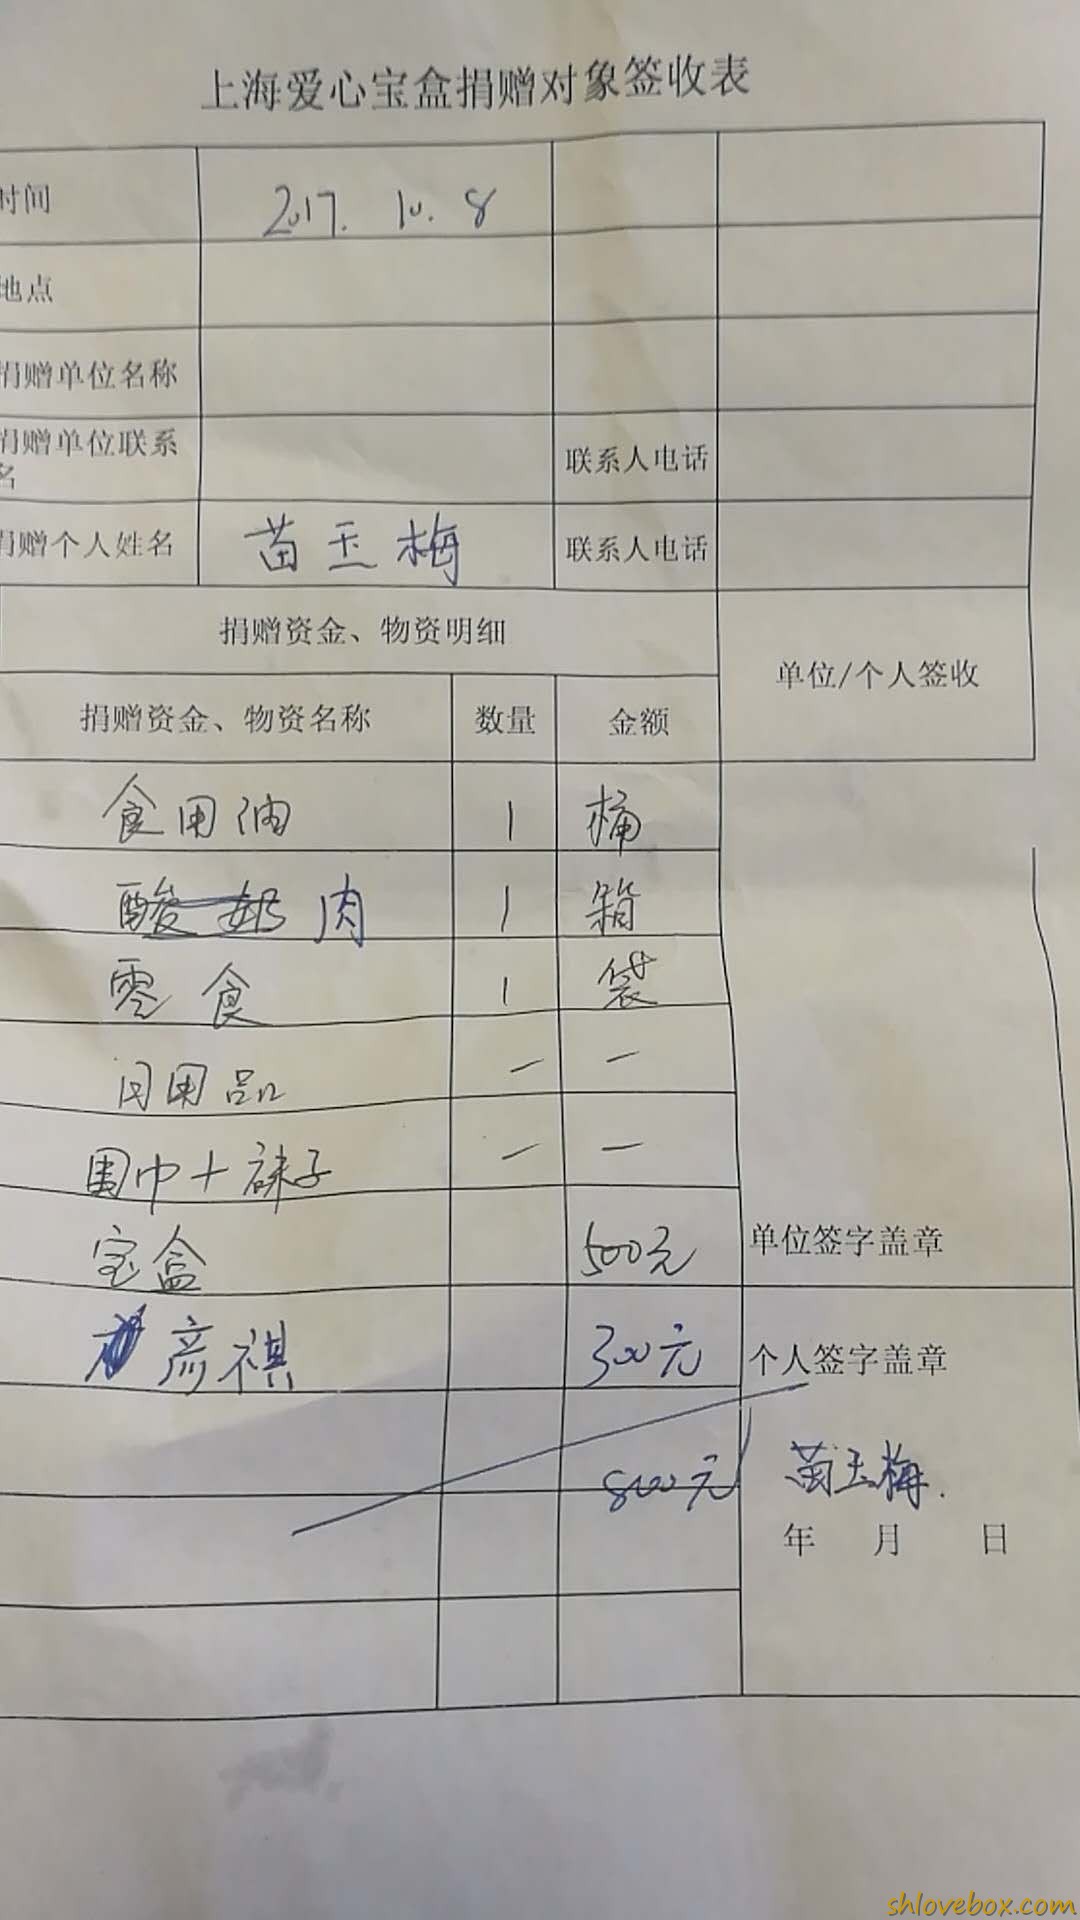 上海爱心宝盒捐赠对象签收表
时间 2017. 10. 8
地点
捐赠单位名称
捐赠单位联系
名 联系人电话
捐赠个人姓名 苗玉梅 联系人电话
捐赠资金、物资明细
单位/个人签收
捐赠资金、物资名称 数量 金额
食用油 1 桶
酸奶 肉 1 箱
零食 1 袋
日用品 一 一
围巾+袜子 一 一
宝盒 500元 单位签字盖章
彦祺 300元 个人签字盖章
800元 苗玉梅.
年 月 日
shlovebox.com